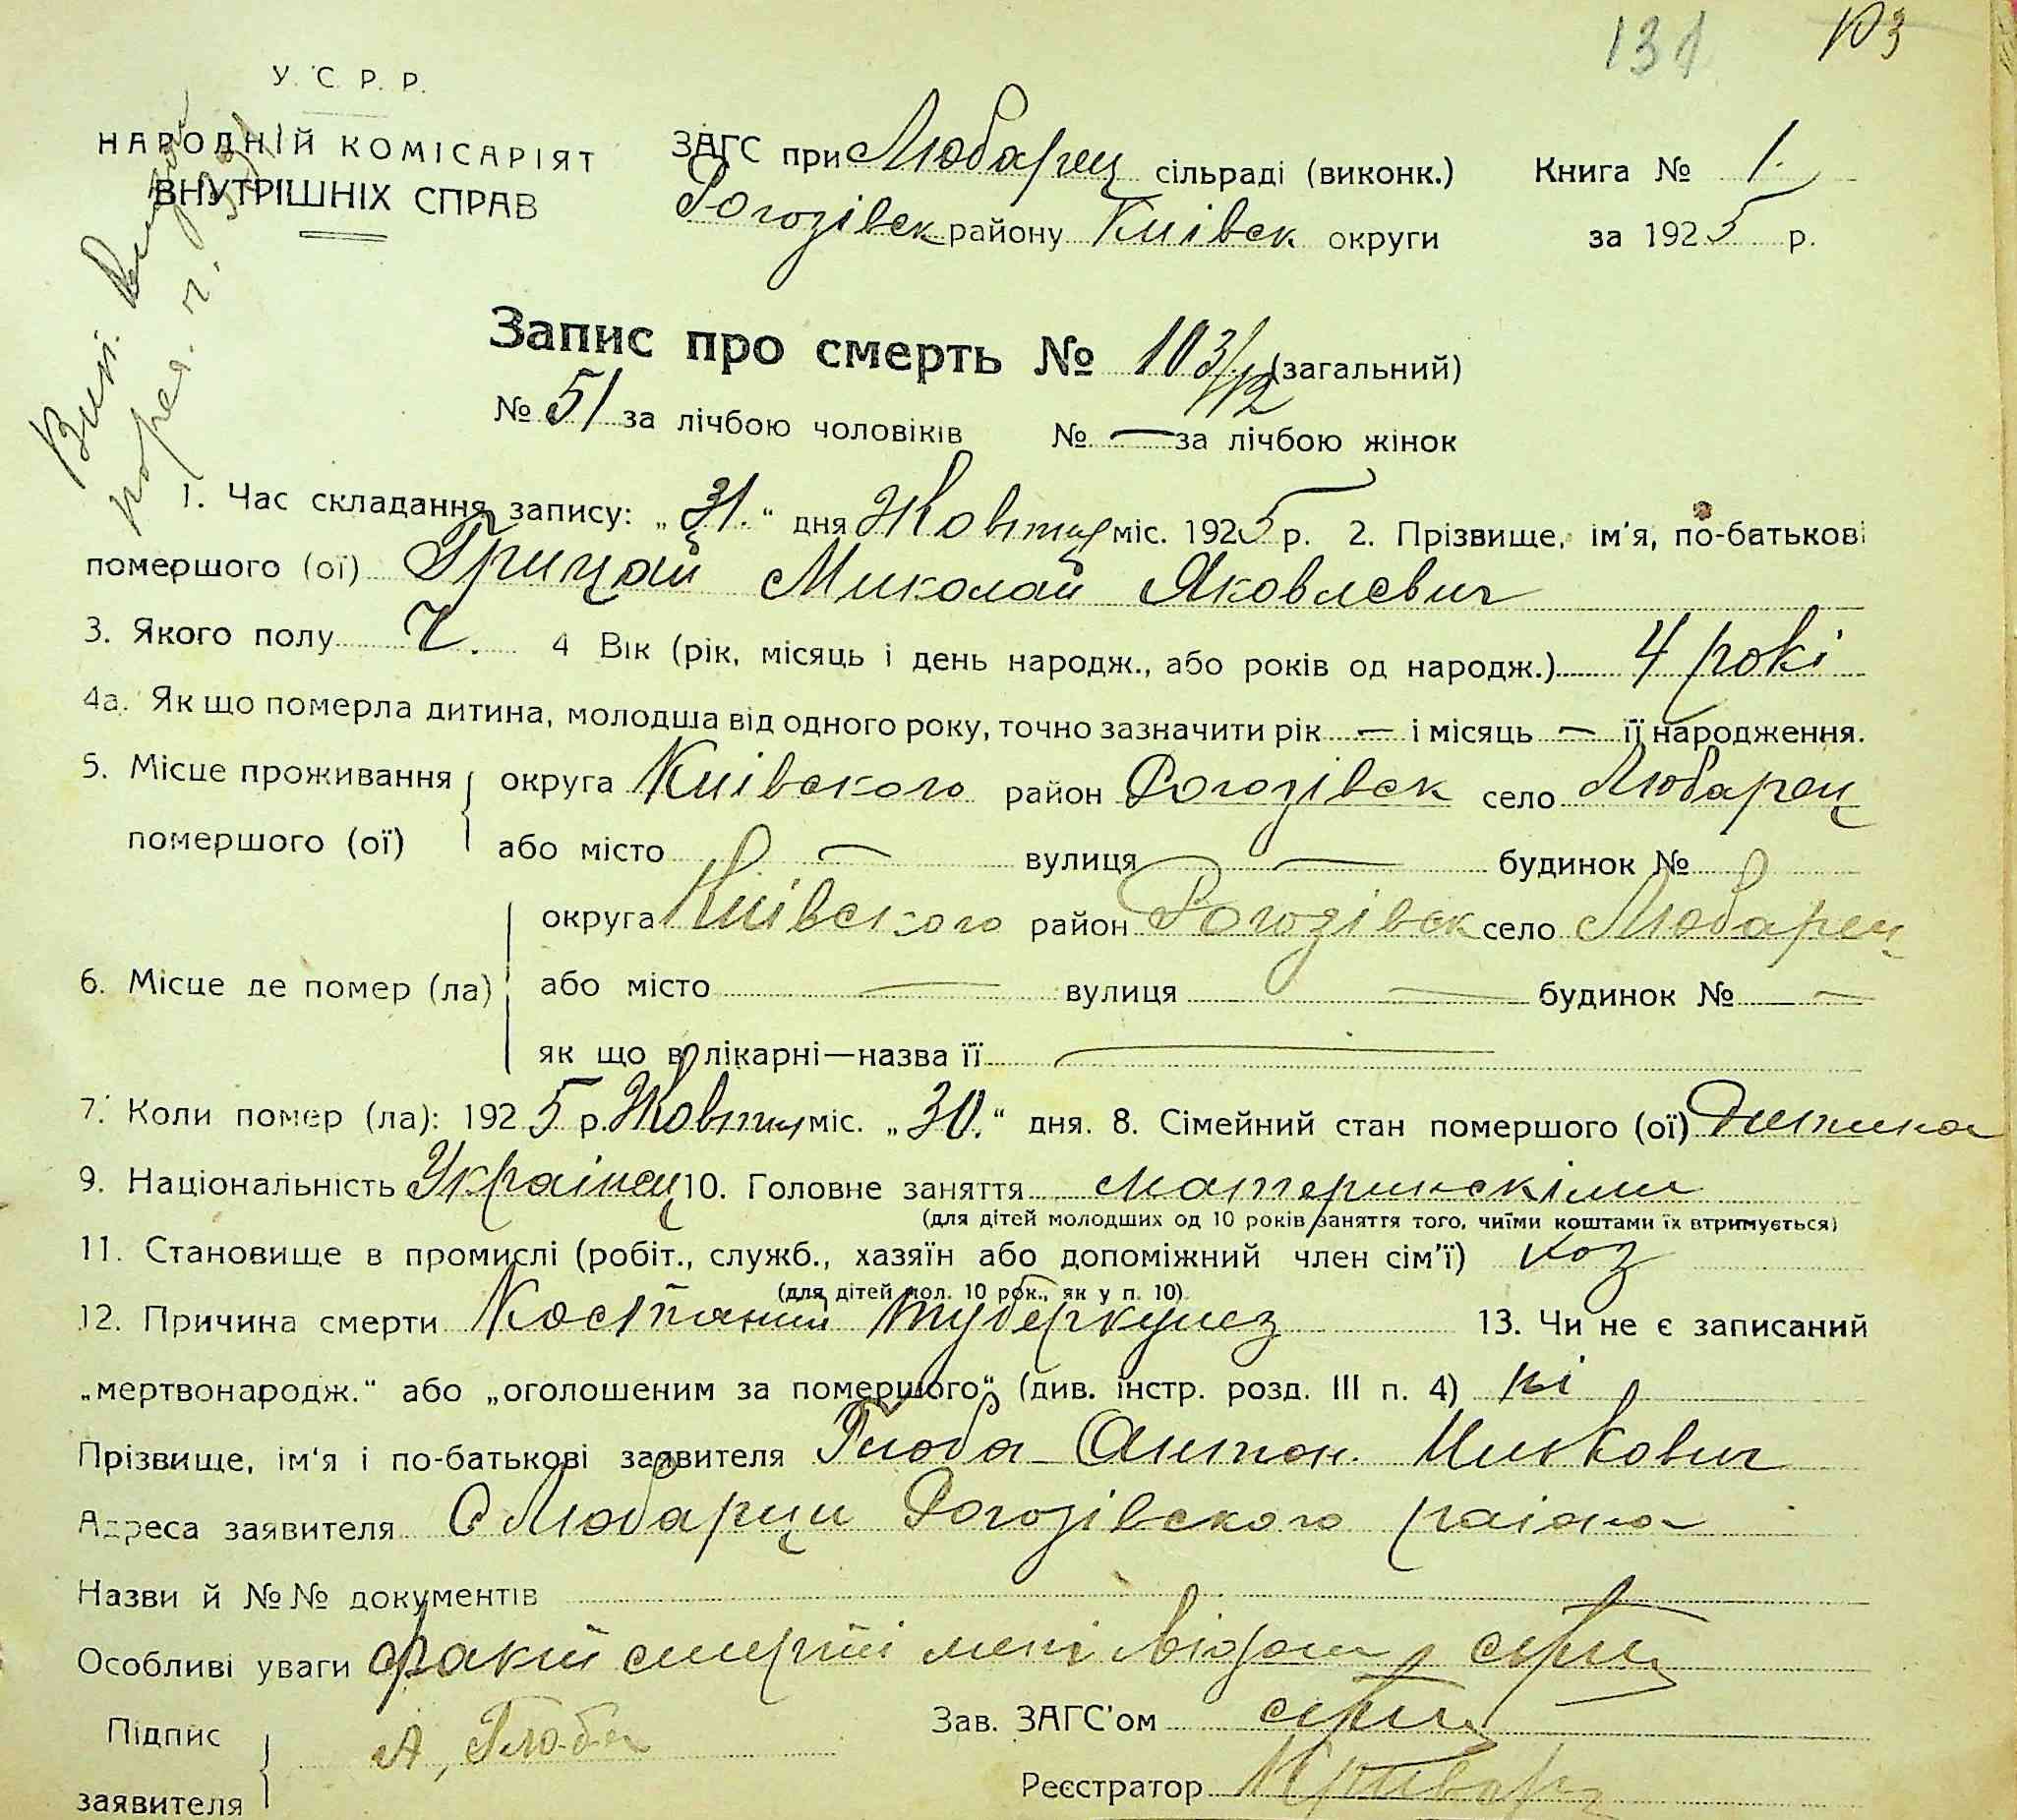 131 103
У. С. Р. Р.
НАРОДНІЙ КОМІСАРІЯТ
ВНУТРІШНІХ СПРАВ
ЗАГС при Любарец сільраді (виконк.) Книга № 1.
Рогозівск району Киівск округи за 1925 р.
Запис про смерть № 103/112 (загальний)
№ 51 за лічбою чоловіків № — за лічбою жінок
1. Час складання запису: „31.“ дня Жовтня міс. 1925 р. 2. Прізвище, ім'я, по-батькові
помершого (ої) Грицай Миколай Яковлевич
3. Якого полу Ч. 4 Вік (рік, місяць і день народж., або років од народж.) 4 рокі
4а. Як що померла дитина, молодша від одного року, точно зазначити рік — і місяць — її народження.
5. Місце проживання округа Киівского район Рогозівск село Любарец
помершого (ої) або місто — вулиця — будинок №
округа Киівского район Рогозівск село Любарец
6. Місце де помер (ла) або місто — вулиця — будинок № —
як що в лікарні—назва її —
7. Коли помер (ла): 1925 р. Жовтня міс. „30.“ дня. 8. Сімейний стан помершого (ої) Дитина
9. Національність Украінец 10. Головне заняття материнскіми
(для дітей молодших од 10 років заняття того, чиїми коштами їх втримується)
11. Становище в промислі (робіт., служб., хазяїн або допоміжний член сім'ї) хоз
(для дітей мол. 10 рок., як у п. 10)
12. Причина смерти Костяний туберкулез 13. Чи не є записаний
„мертвонародж.“ або „оголошеним за помершого“ (див. інстр. розд. III п. 4) ні
Прізвище, ім'я і по-батькові заявителя Глоба Антон
Адреса заявителя С Любарци Рогозівского раіона
Назви й №№ документів
Особливі уваги факт смерті мені відом
Підпис А, Глоба Зав. ЗАГС'ом
заявителя Реєстратор